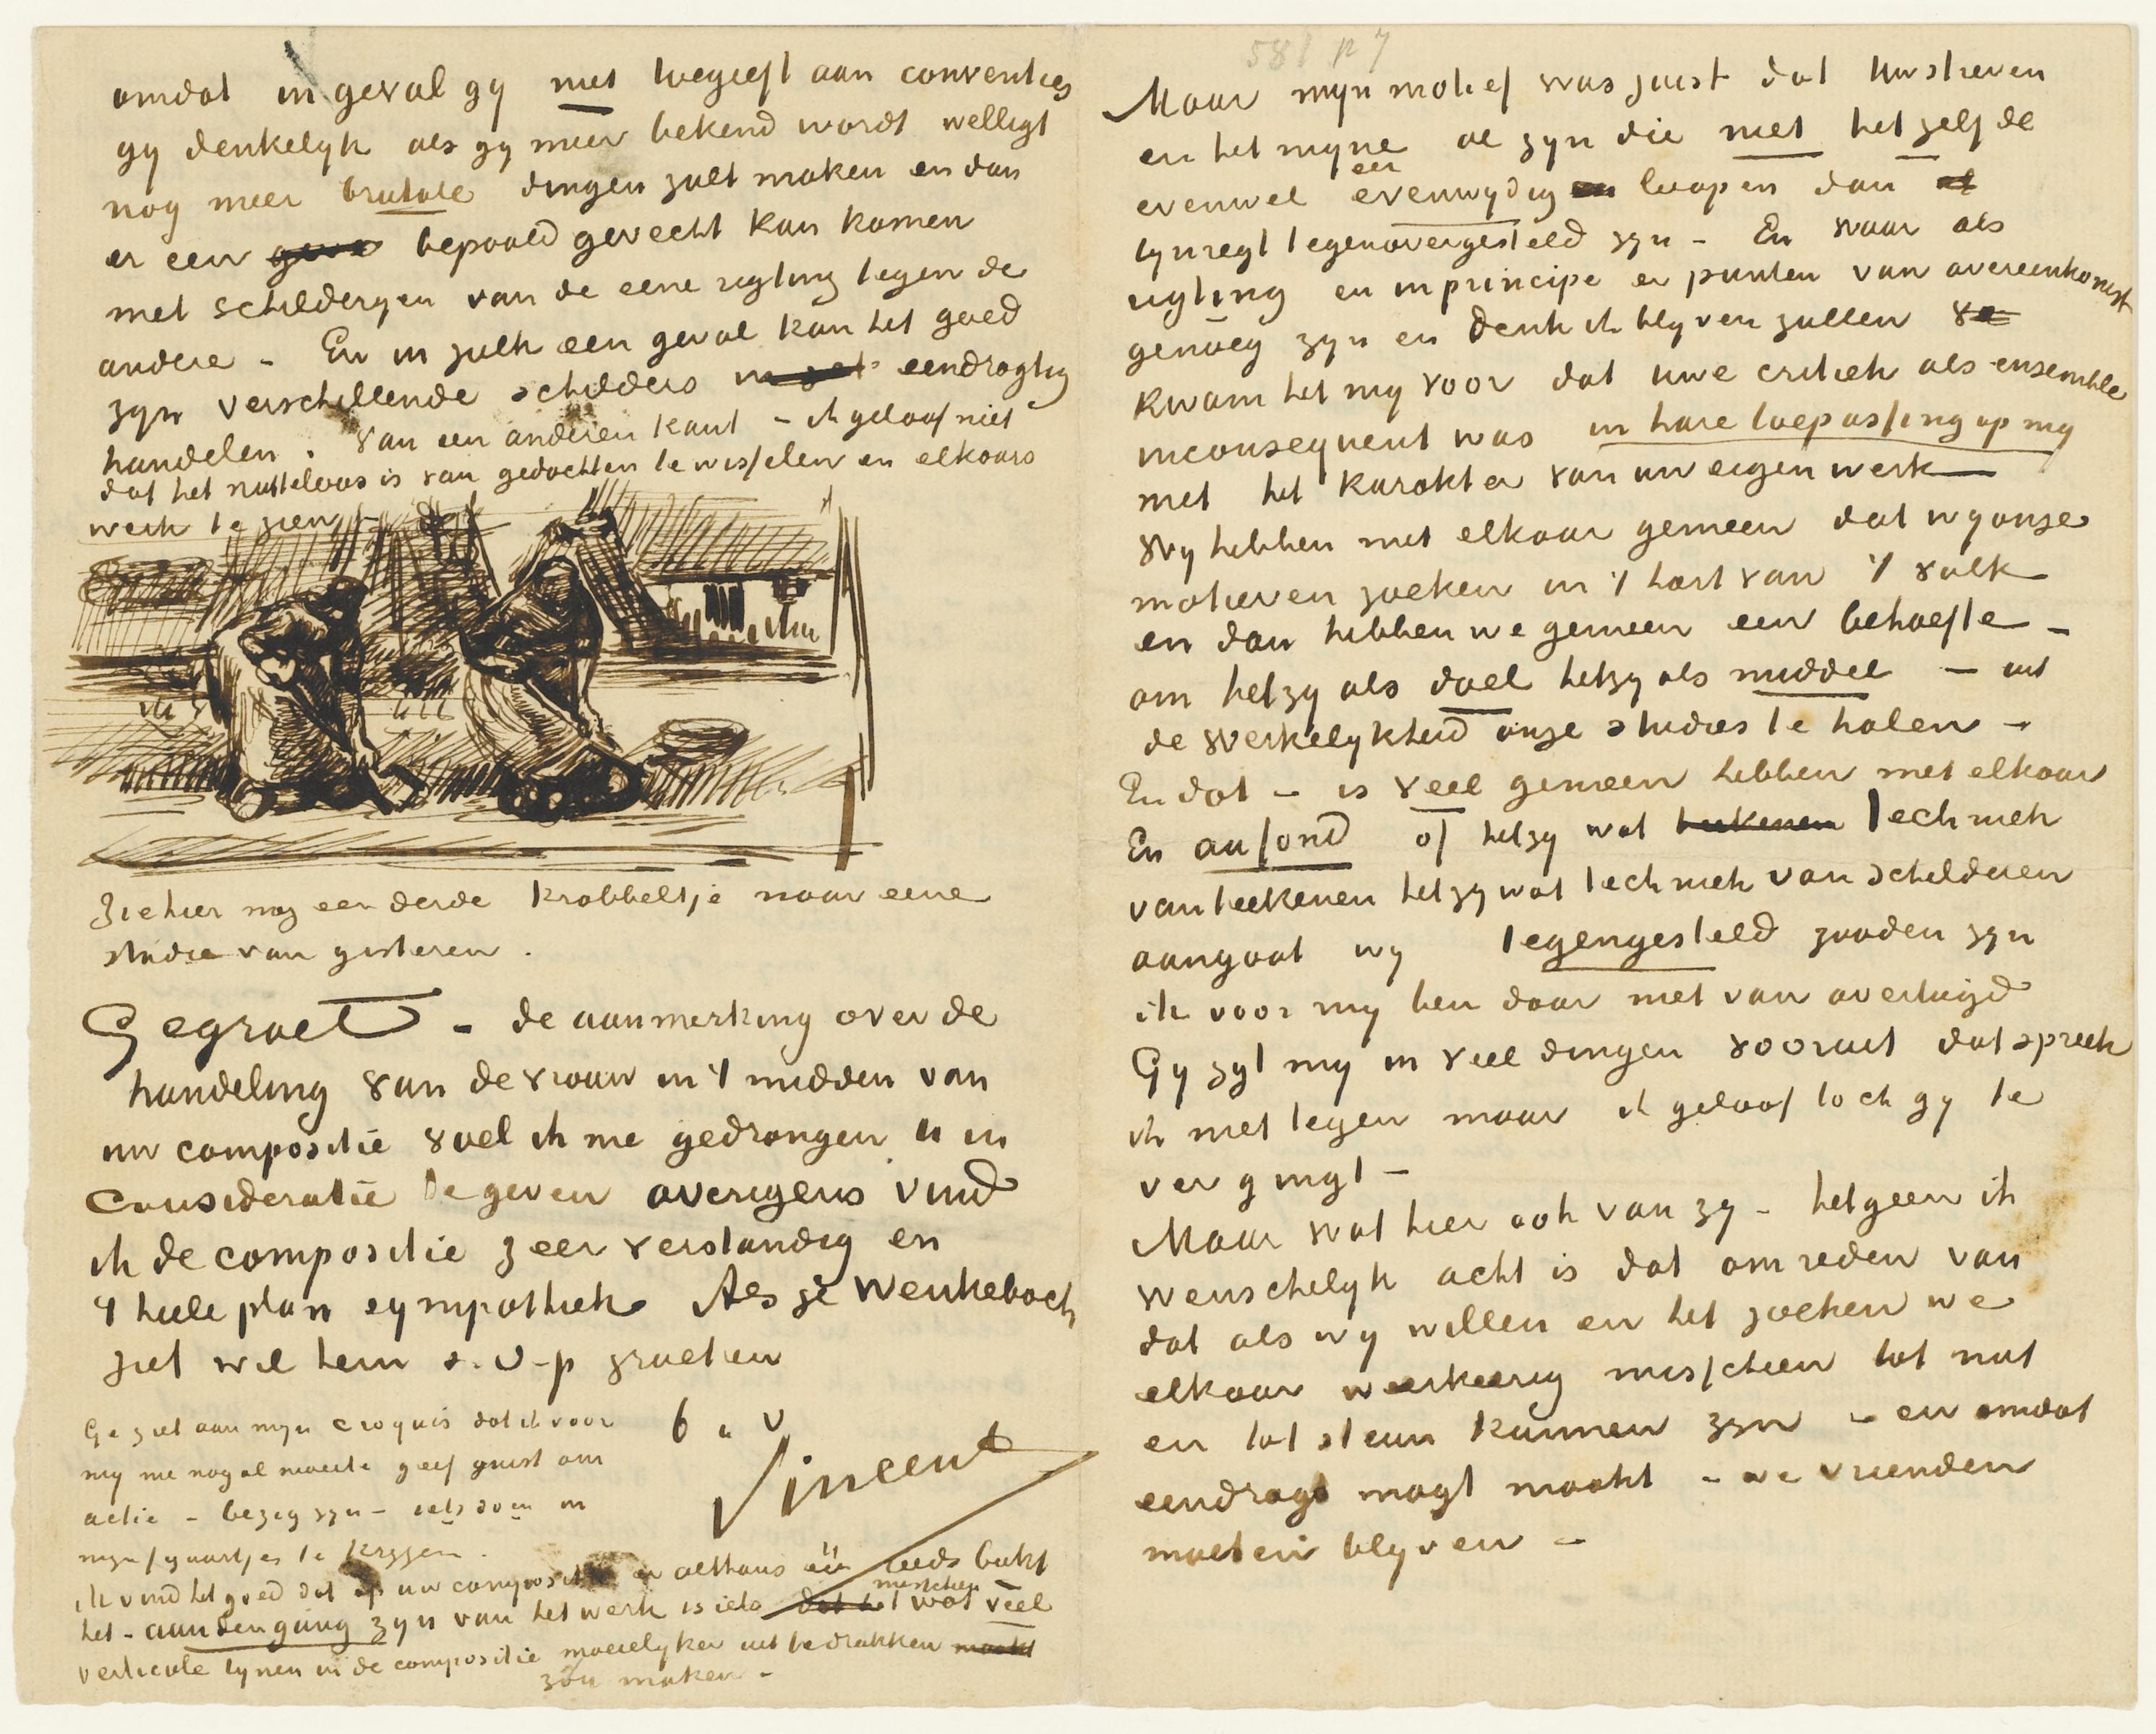 omdat in geval gy niet toegeeft aan conventies
gy denkelyk als gy meer bekend wordt welligt
nog meer brutale dingen zult maken en dan
er een bepaald gevecht kan komen
met schilderyen van de eene rigting tegen de
andere – En in zulk een geval kan het goed
zyn verschillende schilders eendragtig
handelen. Van een anderen kant – ik geloof niet
dat het nutteloos is van gedachten te wisselen en elkaars
werk te zien –
Ziehier nog een derde krabbeltje naar eene
studie van gisteren.
Gegroet – de aanmerking over de
handeling van de vrouw in 't midden van
uw compositie voel ik me gedrongen u in
consideratie te geven overigens vind
ik de compositie zeer verstandig en
't heele plan sympathiek. Als je Wenkebach
ziet wil hem s.v.p groeten
Ge ziet aan myn croquis dat ik voor
my me nog al moeite geef juist om
actie – bezig zyn – iets doen in
myn figuurtjes te krygen.
t. à v.
Vincent
ik vind het goed dat op uw compositie er althans één reeds bukt
het – aan den gang zyn van het werk is iets dat het misschien wat veel
verticale lynen in de compositie moeielyker uit te drukken maakt
zou maken –
581 p 7
Maar myn motief was juist dat Uw streven
en het myne al zyn die niet hetzelfde
evenwel eer evenwydig en loopen dan
lynregt tegenovergesteld zyn – En waar als
rigting en in principe er punten van overeenkomst
genoeg zyn en denk ik blyven zullen
kwam het my voor dat uwe critiek als ensemble
inconsequent was in hare toepassing op my
met het karakter van uw eigen werk
Wy hebben met elkaar gemeen dat wy onze
motieven zoeken in 't hart van 't volk
en dan hebben we gemeen een behoefte –
om hetzy als doel hetzy als middel – uit
de werkelykheid onze studies te halen –
En dat – is veel gemeen hebben met elkaar
En au fond of hetzy wat teekenen techniek
van teekenen hetzy wat techniek van schilderen
aangaat wy tegengesteld zouden zyn
ik voor my ben daar niet van overtuigd
Gy zyt my in veel dingen vooruit dat spreek
ik niet tegen maar ik geloof toch gy te
ver gingt –
Maar wat hier ook van zy – hetgeen ik
wenschelyk acht is dat om reden van
dat als wy willen en het zoeken we
elkaar weerkeerig misschien tot nut
en tot steun kunnen zyn – en omdat
eendragt magt maakt – we vrienden
moeten blyven –